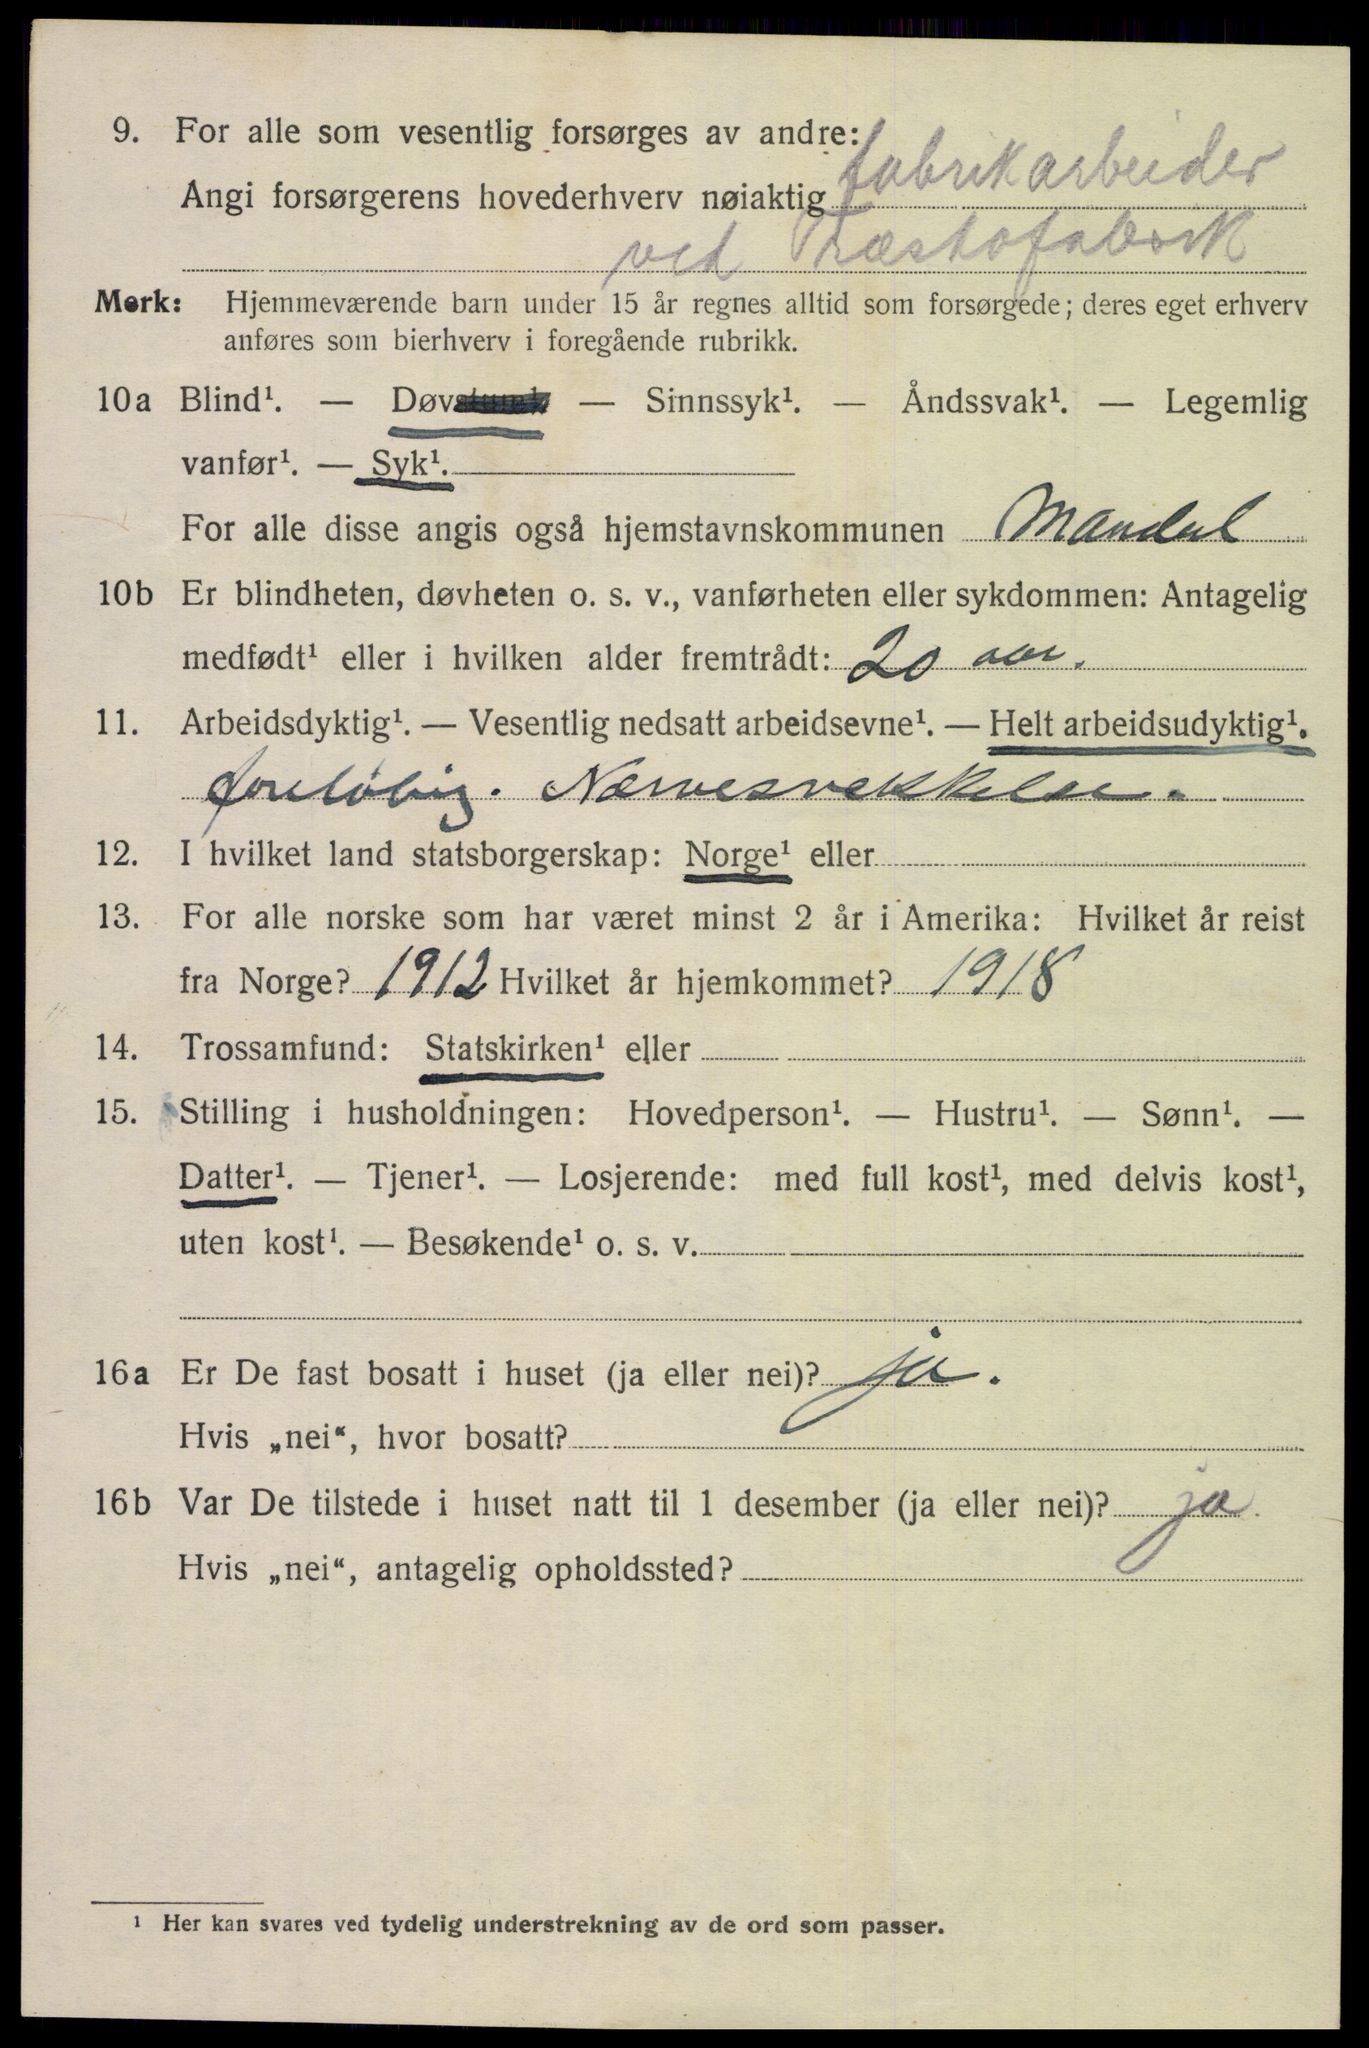 9. For alle som vesentlig forsørges av andre:
Angi forsørgerens hovederhverv nøiaktig fabrikarbeider
ved Træskofabrik
Merk: Hjemmeværende barn under 15 år regnes alltid som forsørgede; deres eget erhverv
anføres som bierhverv i foregående rubrikk.
10a Blind¹. — Døvstum¹. — Sinnssyk¹. — Åndssvak¹. — Legemlig
vanfør¹. — Syk¹.
For alle disse angis også hjemstavnskommunen Mandal
10b Er blindheten, døvheten o. s. v., vanførheten eller sykdommen: Antagelig
medfødt¹ eller i hvilken alder fremtrådt: 20 aar.
11. Arbeidsdyktig¹. — Vesentlig nedsatt arbeidsevne¹. — Helt arbeidsudyktig¹.
foreløbig. Nærvesvekkelse.
12. I hvilket land statsborgerskap: Norge¹ eller
13. For alle norske som har været minst 2 år i Amerika: Hvilket år reist
fra Norge? 1912 Hvilket år hjemkommet? 1918
14. Trossamfund: Statskirken¹ eller
15. Stilling i husholdningen: Hovedperson¹. — Hustru¹. — Sønn¹. —
Datter¹. — Tjener¹. — Losjerende: med full kost¹, med delvis kost¹,
uten kost¹. — Besøkende¹ o. s. v.
16a Er De fast bosatt i huset (ja eller nei)? ja.
Hvis „nei“, hvor bosatt?
16b Var De tilstede i huset natt til 1 desember (ja eller nei)? ja.
Hvis „nei“, antagelig opholdssted?
¹ Her kan svares ved tydelig understrekning av de ord som passer.